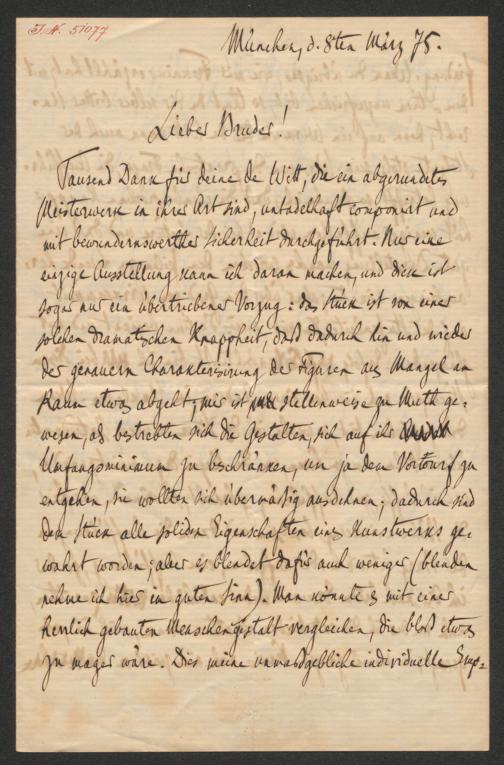 J. N. 51077
München, d. 8ten März 75.
Lieber Bruder!
Tausend Dank für deine de Witt, die ein abgerundetes
Meisterwerk in ihrer Art sind, untadelhaft componirt und
mit bewundernswerther Sicherheit durchgeführt. Nur eine
einzige Ausstellung kann ich daran machen, und diese ist
sogar nur ein übertriebener Vorzug: das Stück ist von einer
solchen dramatischen Knappheit, daß dadurch hin und wieder
der genauern Charakterisirung der Figuren aus Mangel an
Raum etwas abgeht; mir ist stellenweise zu Muth ge-
wesen, als bestrebten sich die Gestalten, sich auf ihr
Umfangsminimum zu beschränken, um ja dem Vorwurf zu
entgehen, sie wollten sich übermäßig ausdehnen; dadurch sind
dem Stück alle soliden Eigenschaften eines Kunstwerks ge-
wahrt worden; aber es blendet dafür auch weniger (blenden
nehme ich hier in guten Sinn). Man könnte es mit einer
herrlich gebauten Menschengestalt vergleichen, die bloß etwas
zu mager wäre. Dies meine unmaßgebliche individuelle Emp-